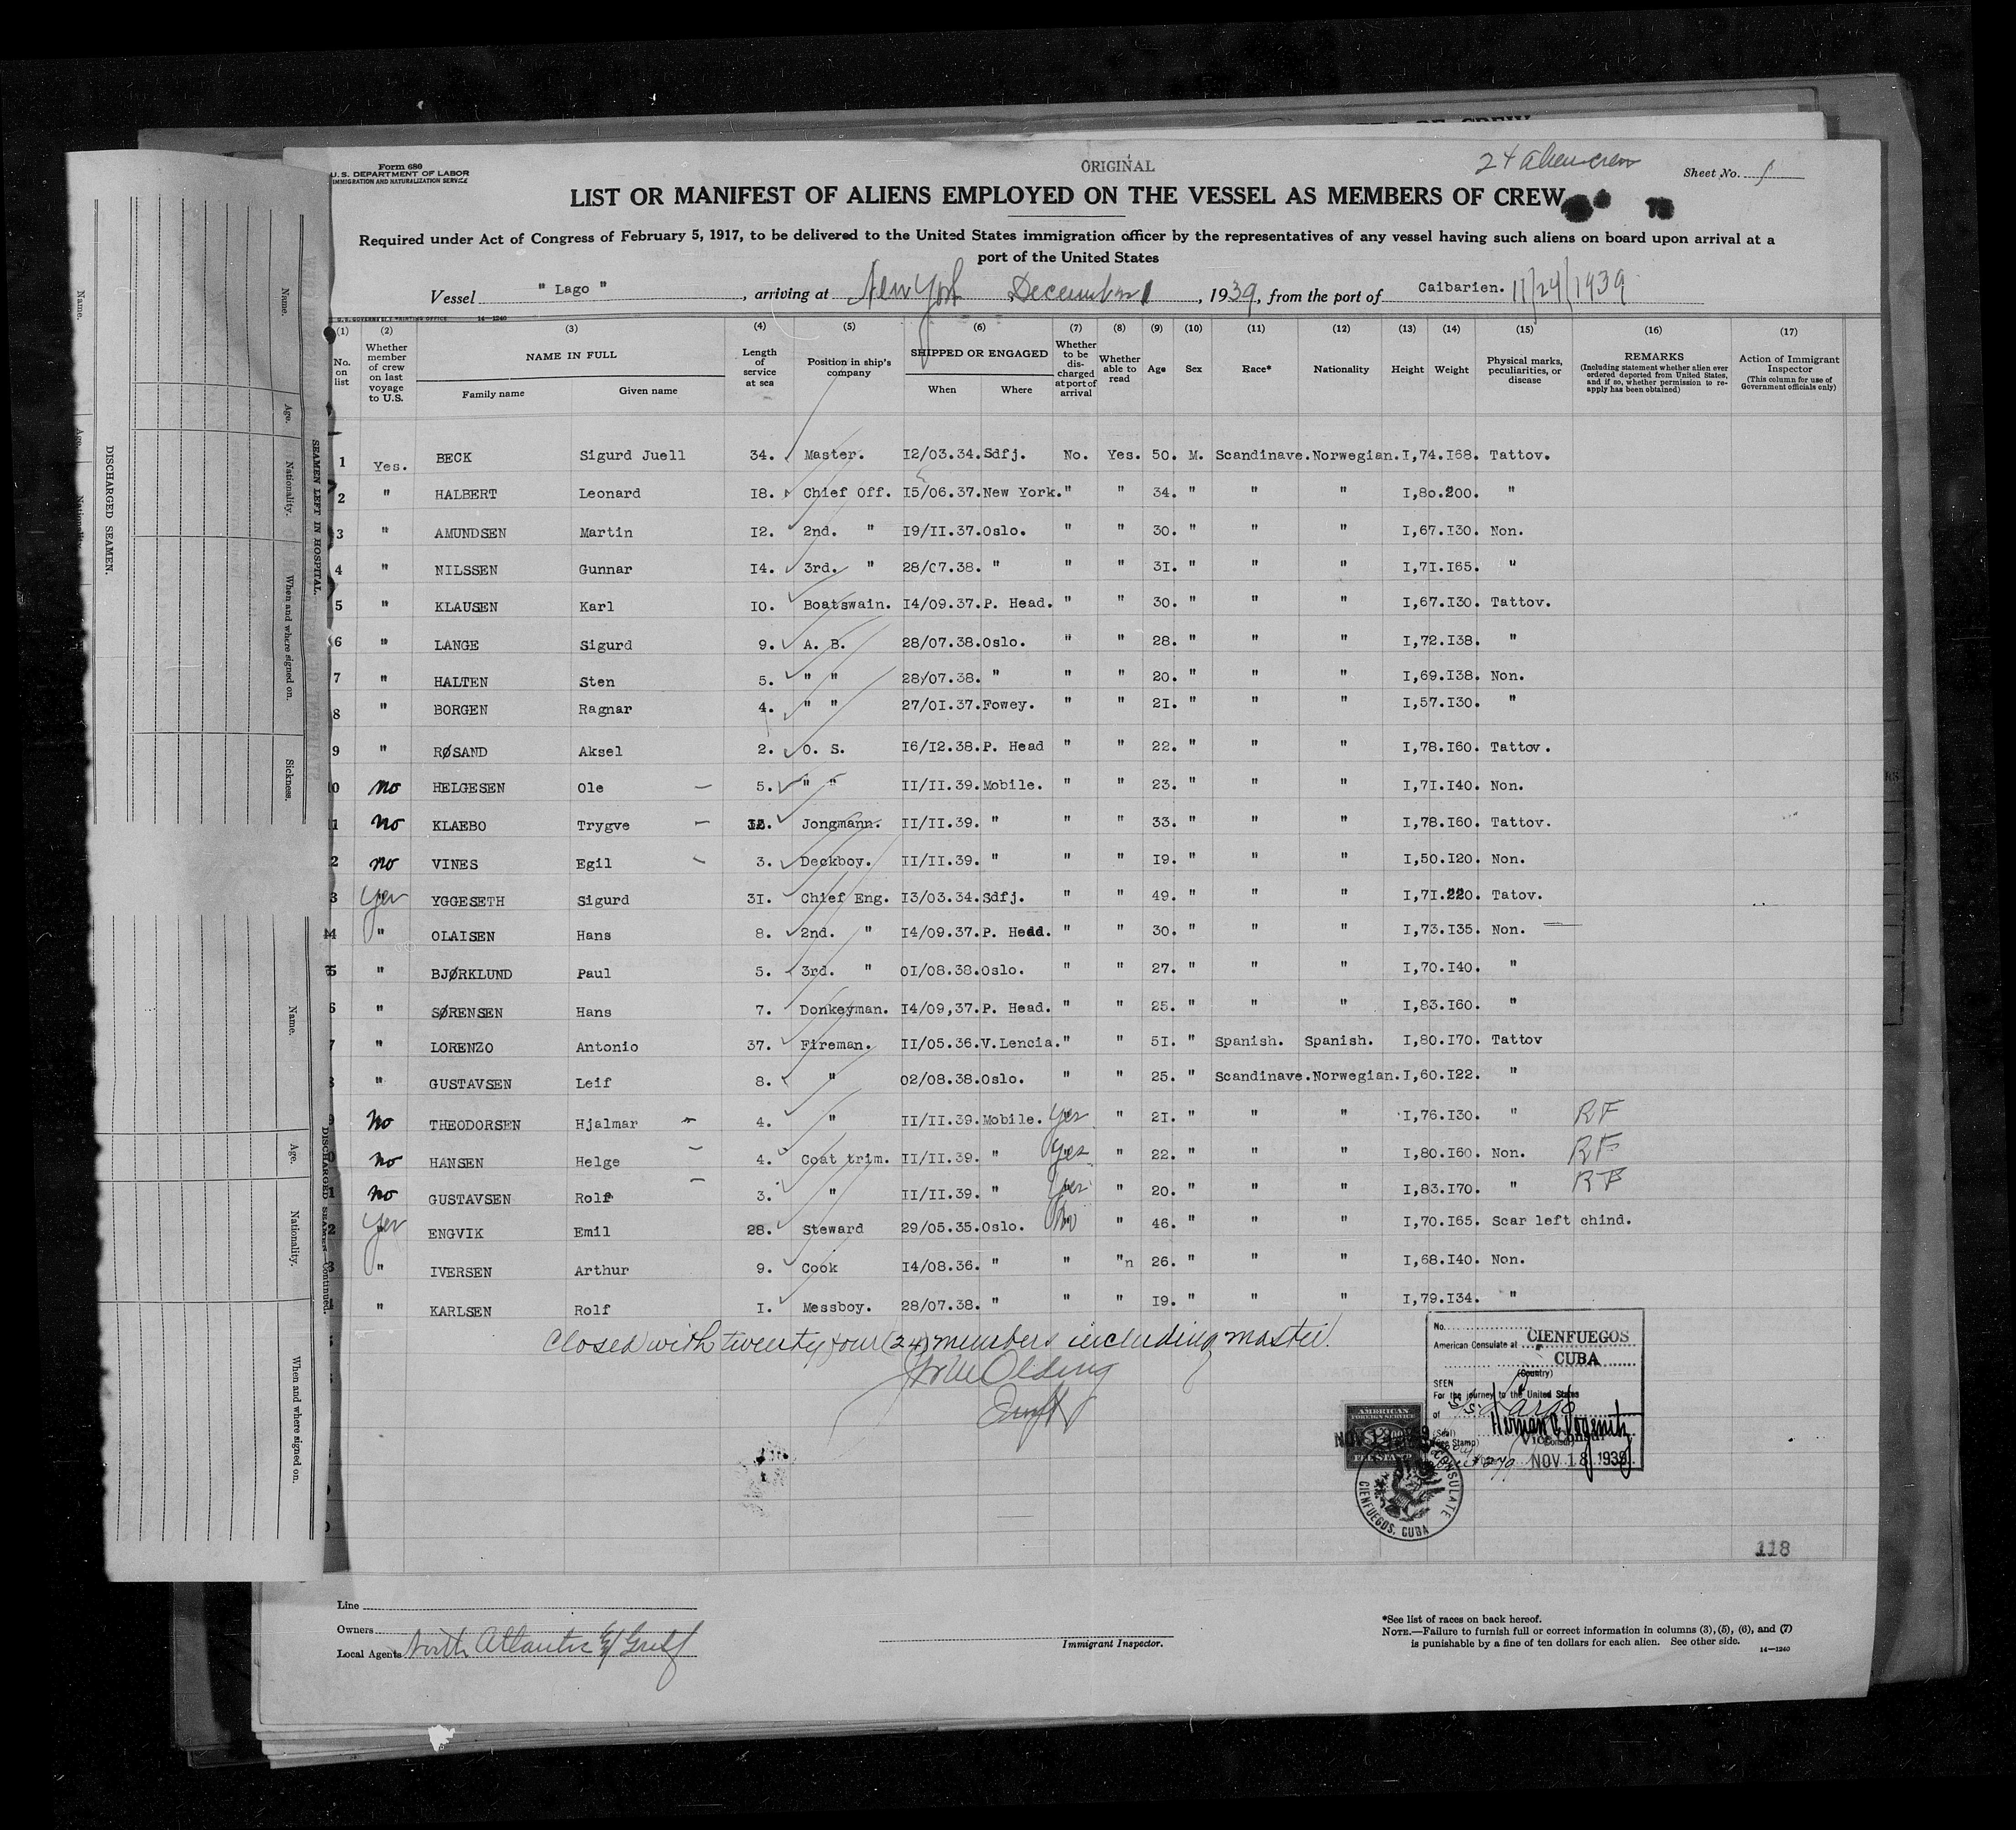 Form 680
U. S. DEPARTMENT OF LABOR
IMMIGRATION AND NATURALIZATION SERVICE
ORIGINAL
24 alien crew
Sheet No. 1
LIST OR MANIFEST OF ALIENS EMPLOYED ON THE VESSEL AS MEMBERS OF CREW
Required under Act of Congress of February 5, 1917, to be delivered to the United States immigration officer by the representatives of any vessel having such aliens on board upon arrival at a
port of the United States
Vessel " Lago ", arriving at New York December 1, 1939, from the port of Caibarien. 11/24/1939
U. S. GOVERNMENT PRINTING OFFICE 14-1240
(1) (2) (3) (4) (5) (6) (7) (8) (9) (10) (11) (12) (13) (14) (15) (16) (17)
No. on list
Whether member of crew on last voyage to U.S.
NAME IN FULL
Family name
Given name
Length of service at sea
Position in ship's company
SHIPPED OR ENGAGED
When
Where
Whether to be discharged at port of arrival
Whether able to read
Age
Sex
Race*
Nationality
Height
Weight
Physical marks, peculiarities, or disease
REMARKS
(Including statement whether alien ever ordered deported from United States, and if so, whether permission to reapply has been obtained)
Action of Immigrant Inspector
(This column for use of Government officials only)
1 Yes. BECK Sigurd Juell 34. Master. I2/03.34. Sdfj. No. Yes. 50. M. Scandinave. Norwegian. I,74. I68. Tattov.
2 " HALBERT Leonard I8. Chief Off. I5/06.37. New York. " " 34. " " " I,80. 200. "
3 " AMUNDSEN Martin I2. 2nd. " I9/II.37. Oslo. " " 30. " " I,67. I30. Non.
4 " NILSSEN Gunnar I4. 3rd. " 28/07.38. " " " 3I. " " " I,71. I65. "
5 " KLAUSEN Karl IO. Boatswain. I4/09.37. P. Head. " " 30. " " " I,67. I30. Tattov.
6 " LANGE Sigurd 9. A. B. 28/07.38. Oslo. " " 28. " " " I,72. I38. "
7 " HALTEN Sten 5. " " 28/07.38. " " " 20. " " " I,69. I38. Non.
8 " BORGEN Ragnar 4. " " 27/0I.37. Fowey. " " 2I. " " " I,57. I30. "
9 " RØSAND Aksel 2. O. S. I6/I2.38. P. Head " " 22. " " " I,78. I60. Tattov.
0 no HELGESEN Ole — 5. " " II/II.39. Mobile. " " 23. " " " I,71. I40. Non.
1 no KLAEBO Trygve — Jongmann. II/II.39. " " " 33. " " " I,78. I60. Tattov.
2 no VINES Egil — 3. Deckboy. II/II.39. " " " I9. " " " I,50. I20. Non.
3 Yes YGGESETH Sigurd 3I. Chief Eng. I3/03.34. Sdfj. " " 49. " " I,71. 220. Tatov.
14 " OLAISEN Hans 8. 2nd. " I4/09.37. P. Head. " " 30. " " " I,73. I35. Non.
5 " BJØRKLUND Paul 5. 3rd. " 0I/08.38. Oslo. " " 27. " " " I,70. I40. "
6 " SØRENSEN Hans 7. Donkeyman. I4/09,37. P. Head. " " 25. " " I,83. I60. "
7 " LORENZO Antonio 37. Fireman. II/05.36. V.Lencia. " " 5I. " Spanish. Spanish. I,80. I70. Tattov
" GUSTAVSEN Leif 8. " 02/08.38. Oslo. " " 25. " Scandinave. Norwegian. I,60. I22. "
9 No THEODORSEN Hjalmar 4. " II/II.39. Mobile. Yes " 2I. " " I,76. I30. " RF
0 no HANSEN Helge — 4. Coat trim. II/II.39. " Yes " 22. " " " I,80. I60. Non. RF
1 no GUSTAVSEN Rolf — 3. " II/II.39. " Yes " 20. " " " I,83. I70. " RF
2 Yes ENGVIK Emil 28. Steward 29/05.35. Oslo. No " 46. " " " I,70. I65. Scar left chind.
3 " IVERSEN Arthur 9. Cook I4/08.36. " " "n 26. " " " I,68. I40. Non.
" KARLSEN Rolf I. Messboy. 28/07.38. " " " I9. " " " I,79. I34. "
Closed with twenty four (24) members including master.
No.
American Consulate at CIENFUEGOS
CUBA
(Country)
SEEN
For the journey to the United States
of S.S. Lago
(Seal)
(Fee Stamp)
Vice Consul
NOV 18 1939
AMERICAN
FOREIGN SERVICE
FEE STAMP
CONSULATE
CIENFUEGOS, CUBA
118
Line
Owners
Local Agents North Atlantic & Gulf
Immigrant Inspector.
*See list of races on back hereof.
NOTE.—Failure to furnish full or correct information in columns (3), (5), (6), and (7)
is punishable by a fine of ten dollars for each alien. See other side.
14—1240
DISCHARGED SEAMEN.
Name.
Age.
Nationality.
SEAMEN LEFT IN HOSPITAL.
Name.
Age.
Nationality.
When and where signed on.
Sickness.
DISCHARGED SEAMEN—Continued.
Name.
Age.
Nationality.
When and where signed on.